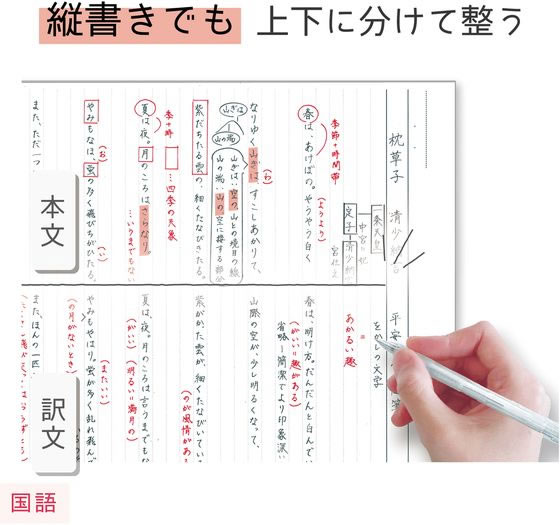 縦書きでも 上下に分けて整う
枕草子 清少納言
平安
をかしの文学
一条天皇
中宮
定子
清少納言
宮仕え
あかるい趣
季節+時間帯
春は、あけぼの。やうやう白く
(ようよう)
春は、明け方。だんだんと白んで
(がいい=趣がある)
省略→簡潔でより印象深い
なりゆく山ぎは、すこしあかりて、
(わ)
山際の空が、少し明るくなって、
山ぎは
山の端
山ぎは：空の、山との境目の線
山の端：山の、空に接する部分
紫だちたる雲の、細くたなびきたる。
紫がかた雲が、細くたなびいてい
(のが風情がある
季+時
…四季の天象
夏は夜。月のころはさらなり、
…いうまでもない
夏は、夜。月のころは言うまでもな
(がいい)
(明るい=満月の)
やみもなほ、蛍の多く飛びちがひたる。
(お)
(い)
やみもやはり。蛍が多く乱れ飛んで
(またいい)
(の月がないとき)
また、ただ一つ
また、ほんの一匹
本文
訳文
国語